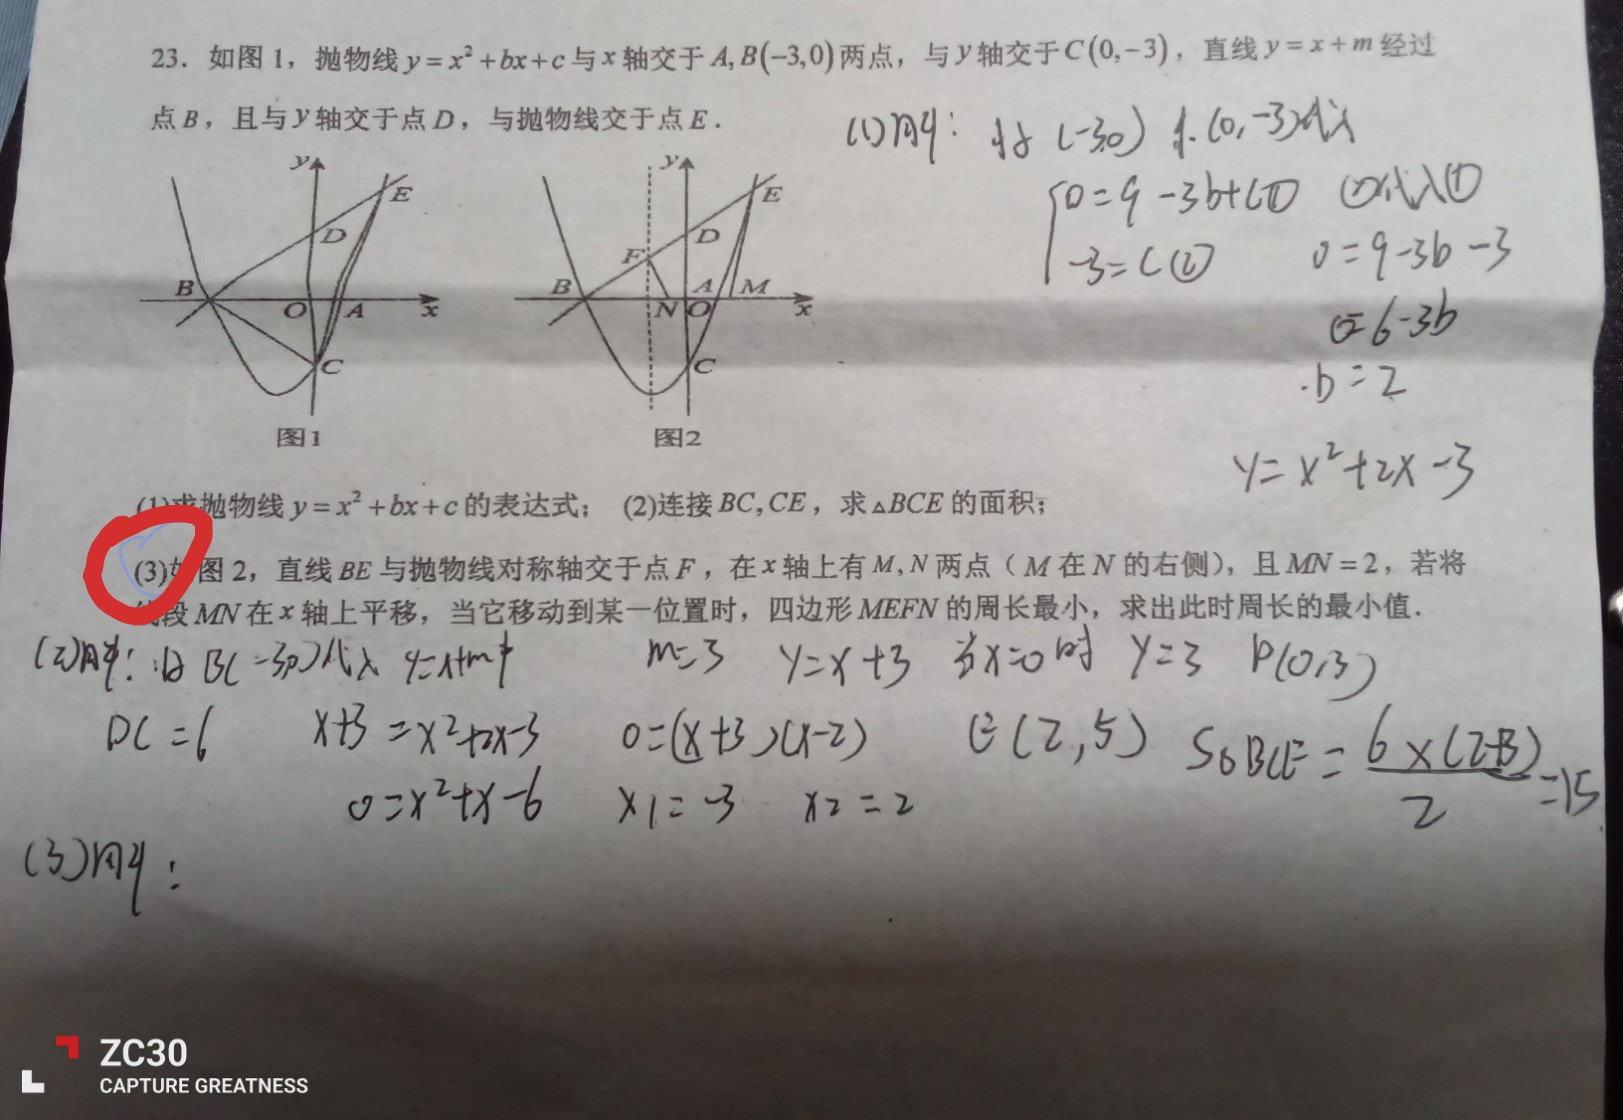 23. 如图1，抛物线 y=x²+bx+c 与 x 轴交于 A,B(-3,0) 两点，与 y 轴交于 C(0,-3)，直线 y=x+m 经过
点 B，且与 y 轴交于点 D，与抛物线交于点 E．
(1)解：将(-3,0) (0,-3)代入
0=9-3b+c① ②代入①
-3=c② 0=9-3b-3
0=6-3b
b=2
y=x²+2x-3
y E D B O A x C
图1
y E D F B A M N O x C
图2
(1)求抛物线 y=x²+bx+c 的表达式； (2)连接 BC,CE，求△BCE 的面积；
(3)如图2，直线 BE 与抛物线对称轴交于点 F，在 x 轴上有 M,N 两点（M 在 N 的右侧），且 MN=2，若将
线段 MN 在 x 轴上平移，当它移动到某一位置时，四边形 MEFN 的周长最小，求出此时周长的最小值．
(2)解：将B(-3,0)代入 y=x+m中 m=3 y=x+3 当x=0时 y=3 D(0,3)
DC=6 x+3=x²+2x-3 0=(x+3)(x-2) E(2,5) S△BCE=6×(2+3)/2=15
0=x²+x-6 x1=-3 x2=2
(3)解：
ZC30
CAPTURE GREATNESS